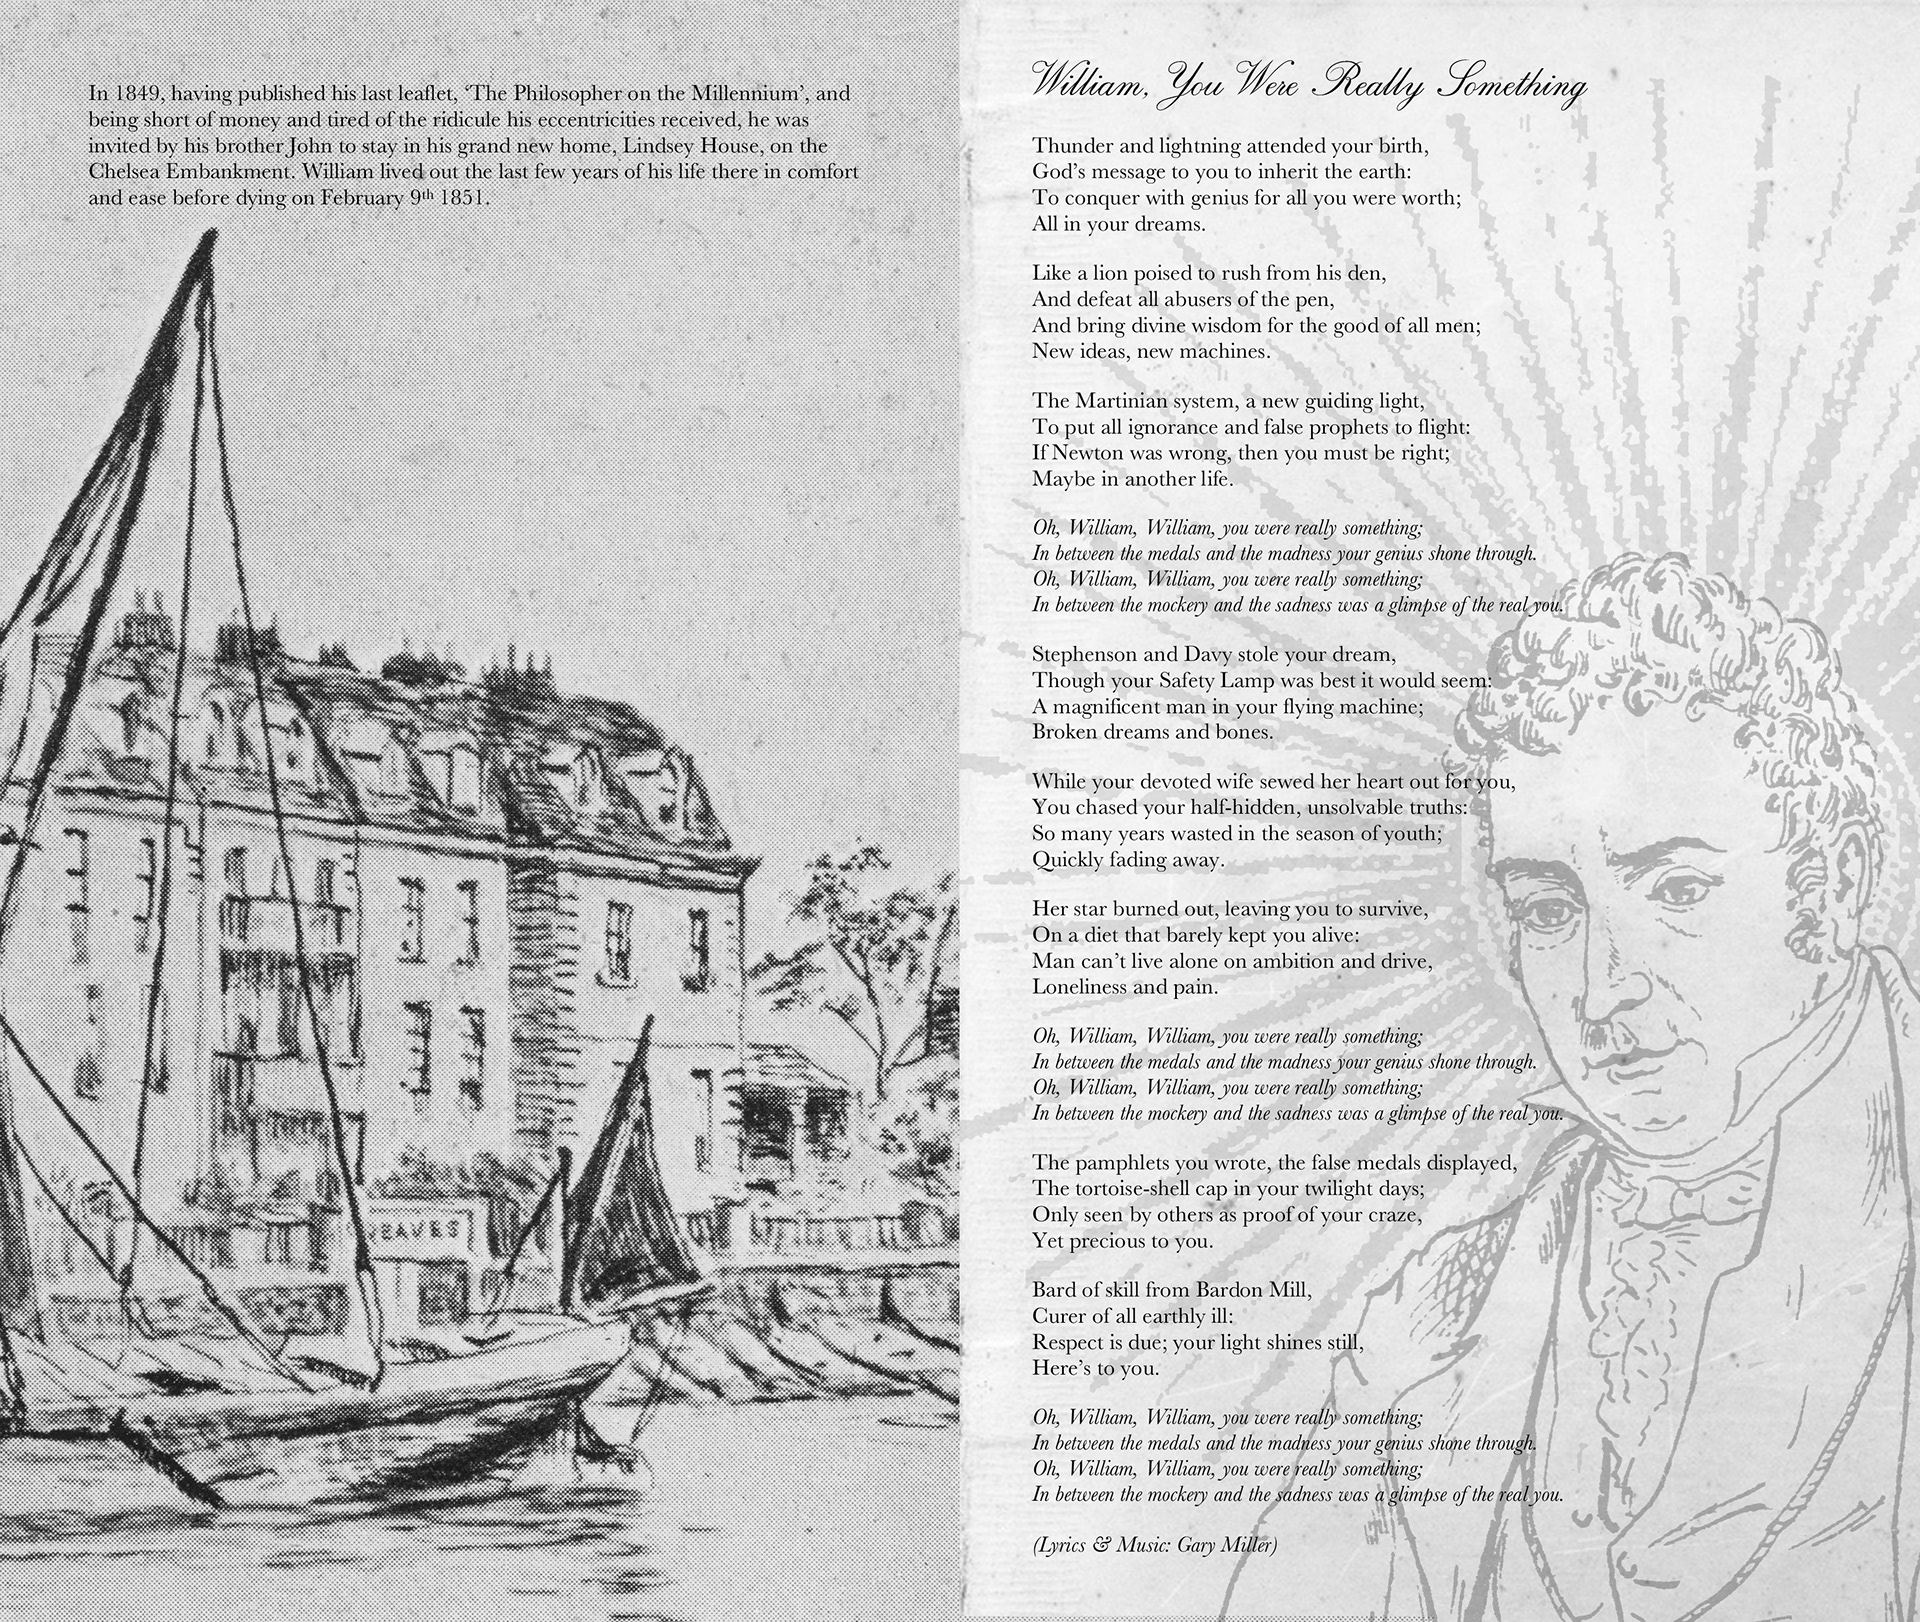 In 1849, having published his last leaflet, ‘The Philosopher on the Millennium’, and
being short of money and tired of the ridicule his eccentricities received, he was
invited by his brother John to stay in his grand new home, Lindsey House, on the
Chelsea Embankment. William lived out the last few years of his life there in comfort
and ease before dying on February 9th 1851.
EAVES
William, You Were Really Something
Thunder and lightning attended your birth,
God’s message to you to inherit the earth:
To conquer with genius for all you were worth;
All in your dreams.
Like a lion poised to rush from his den,
And defeat all abusers of the pen,
And bring divine wisdom for the good of all men;
New ideas, new machines.
The Martinian system, a new guiding light,
To put all ignorance and false prophets to flight:
If Newton was wrong, then you must be right;
Maybe in another life.
Oh, William, William, you were really something;
In between the medals and the madness your genius shone through.
Oh, William, William, you were really something;
In between the mockery and the sadness was a glimpse of the real you.
Stephenson and Davy stole your dream,
Though your Safety Lamp was best it would seem:
A magnificent man in your flying machine;
Broken dreams and bones.
While your devoted wife sewed her heart out for you,
You chased your half-hidden, unsolvable truths:
So many years wasted in the season of youth;
Quickly fading away.
Her star burned out, leaving you to survive,
On a diet that barely kept you alive:
Man can’t live alone on ambition and drive,
Loneliness and pain.
Oh, William, William, you were really something;
In between the medals and the madness your genius shone through.
Oh, William, William, you were really something;
In between the mockery and the sadness was a glimpse of the real you.
The pamphlets you wrote, the false medals displayed,
The tortoise-shell cap in your twilight days;
Only seen by others as proof of your craze,
Yet precious to you.
Bard of skill from Bardon Mill,
Curer of all earthly ill:
Respect is due; your light shines still,
Here’s to you.
Oh, William, William, you were really something;
In between the medals and the madness your genius shone through.
Oh, William, William, you were really something;
In between the mockery and the sadness was a glimpse of the real you.
(Lyrics & Music: Gary Miller)